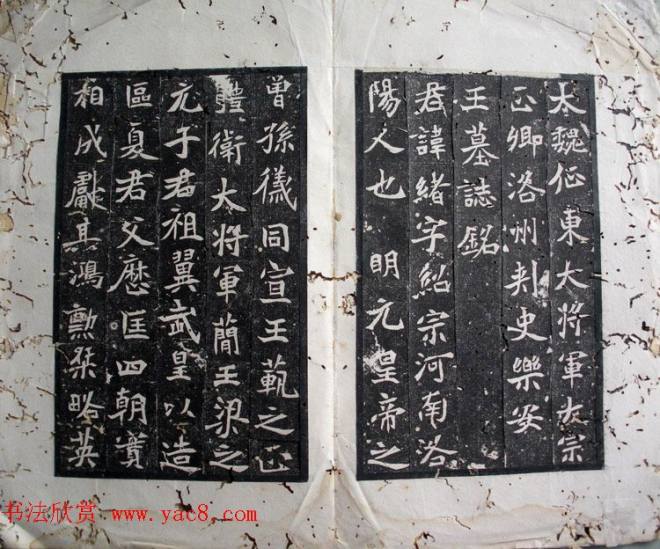 大魏征東大將軍大宗
正卿洛州刺史樂安
王墓誌銘
君諱緒字紹宗河南洛
陽人也 明元皇帝之
曾孫儀同宣王範之正
體衛大將軍簡王梁之
元子君祖翼武皇以造
區夏君父歷匡四朝賛
相成獻其鴻勲桀略英
书法欣赏 www.yac8.com